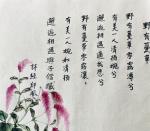 野有蔓草
野有蔓草零露漙兮
有美一人清扬婉兮
邂逅相遇适我愿兮
野有蔓草零露瀼瀼
有美一人婉如清扬
邂逅相遇与子偕臧